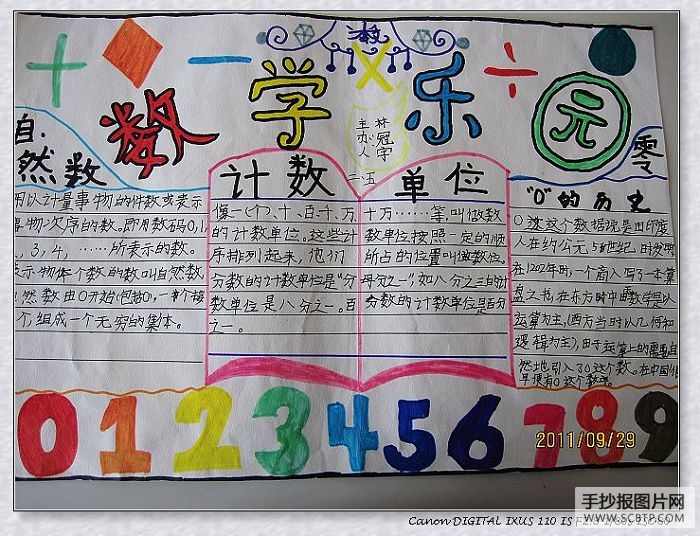 数学乐元
主办人
林冠宇
二五
自然数
用以计量事物的件数或表示
事物次序的数。即用数码0,1,
,3,4,……所表示的数。
表示物体个数的数叫自然数,
自然数由0开始(包括0),一个接
个,组成一个无穷的集体。
计数单位
像一(个)、十、百、千、万、
十万……等,叫做数
的计数单位。这些计
数单位按照一定的顺
序排列起来,他们
所占的位置叫做数位。
分数的计数单位是“分
母分之一”,如八分之三的计
数单位是八分之一。百
分数的计数单位是百分
之一。
零
“0”的历史
0这这个数据说是由印度
人在约公元5世纪时发明,
在1202年时,一个商人写了一本算
盘之书,在东方时中由数学是以
运算为主,(西方当时以几何和
逻辑为主),由于运算上的需要自
然地引入了0这个数。在中国很
早便有0这个数。
0123456789
2011/09/29
手抄报图片网
WWW.SCBTP.COM
Canon DIGITAL IXUS 110 IS